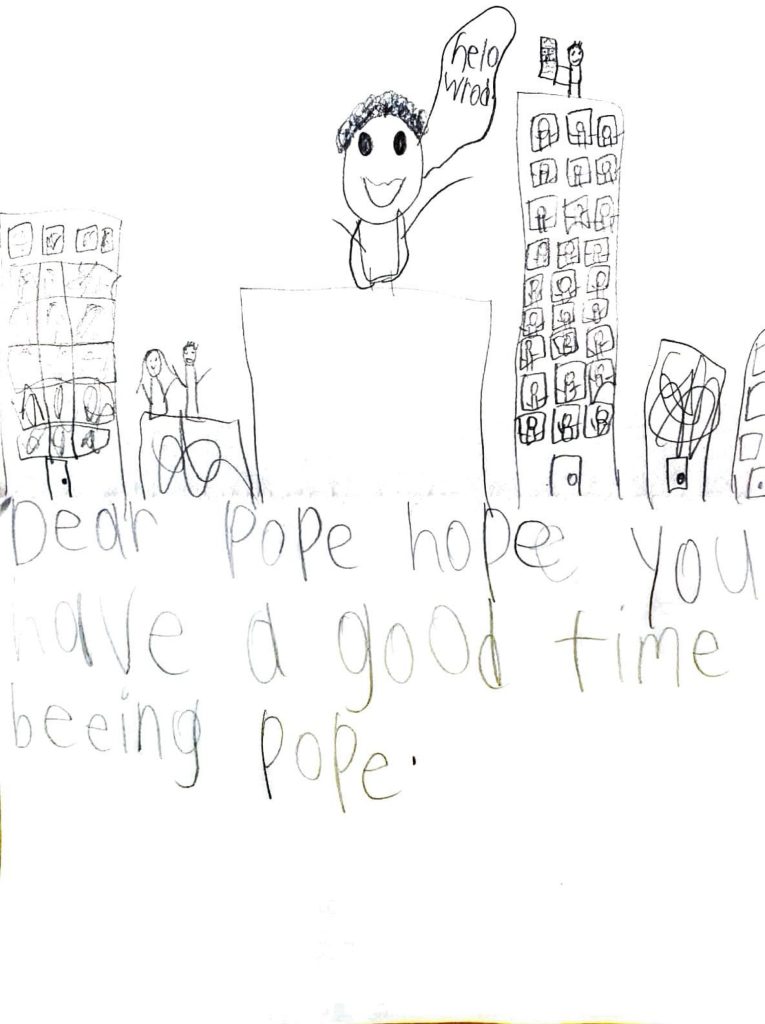 helo
wrod
Dear Pope hope you
have a good time
beeing pope.